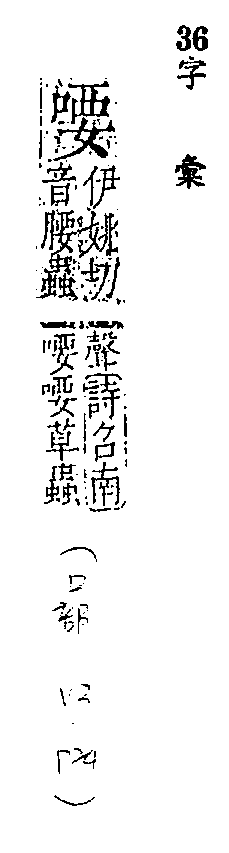 36 字彙
喓
伊姚切
音腰蟲
聲詩召南
喓喓草蟲
（口部